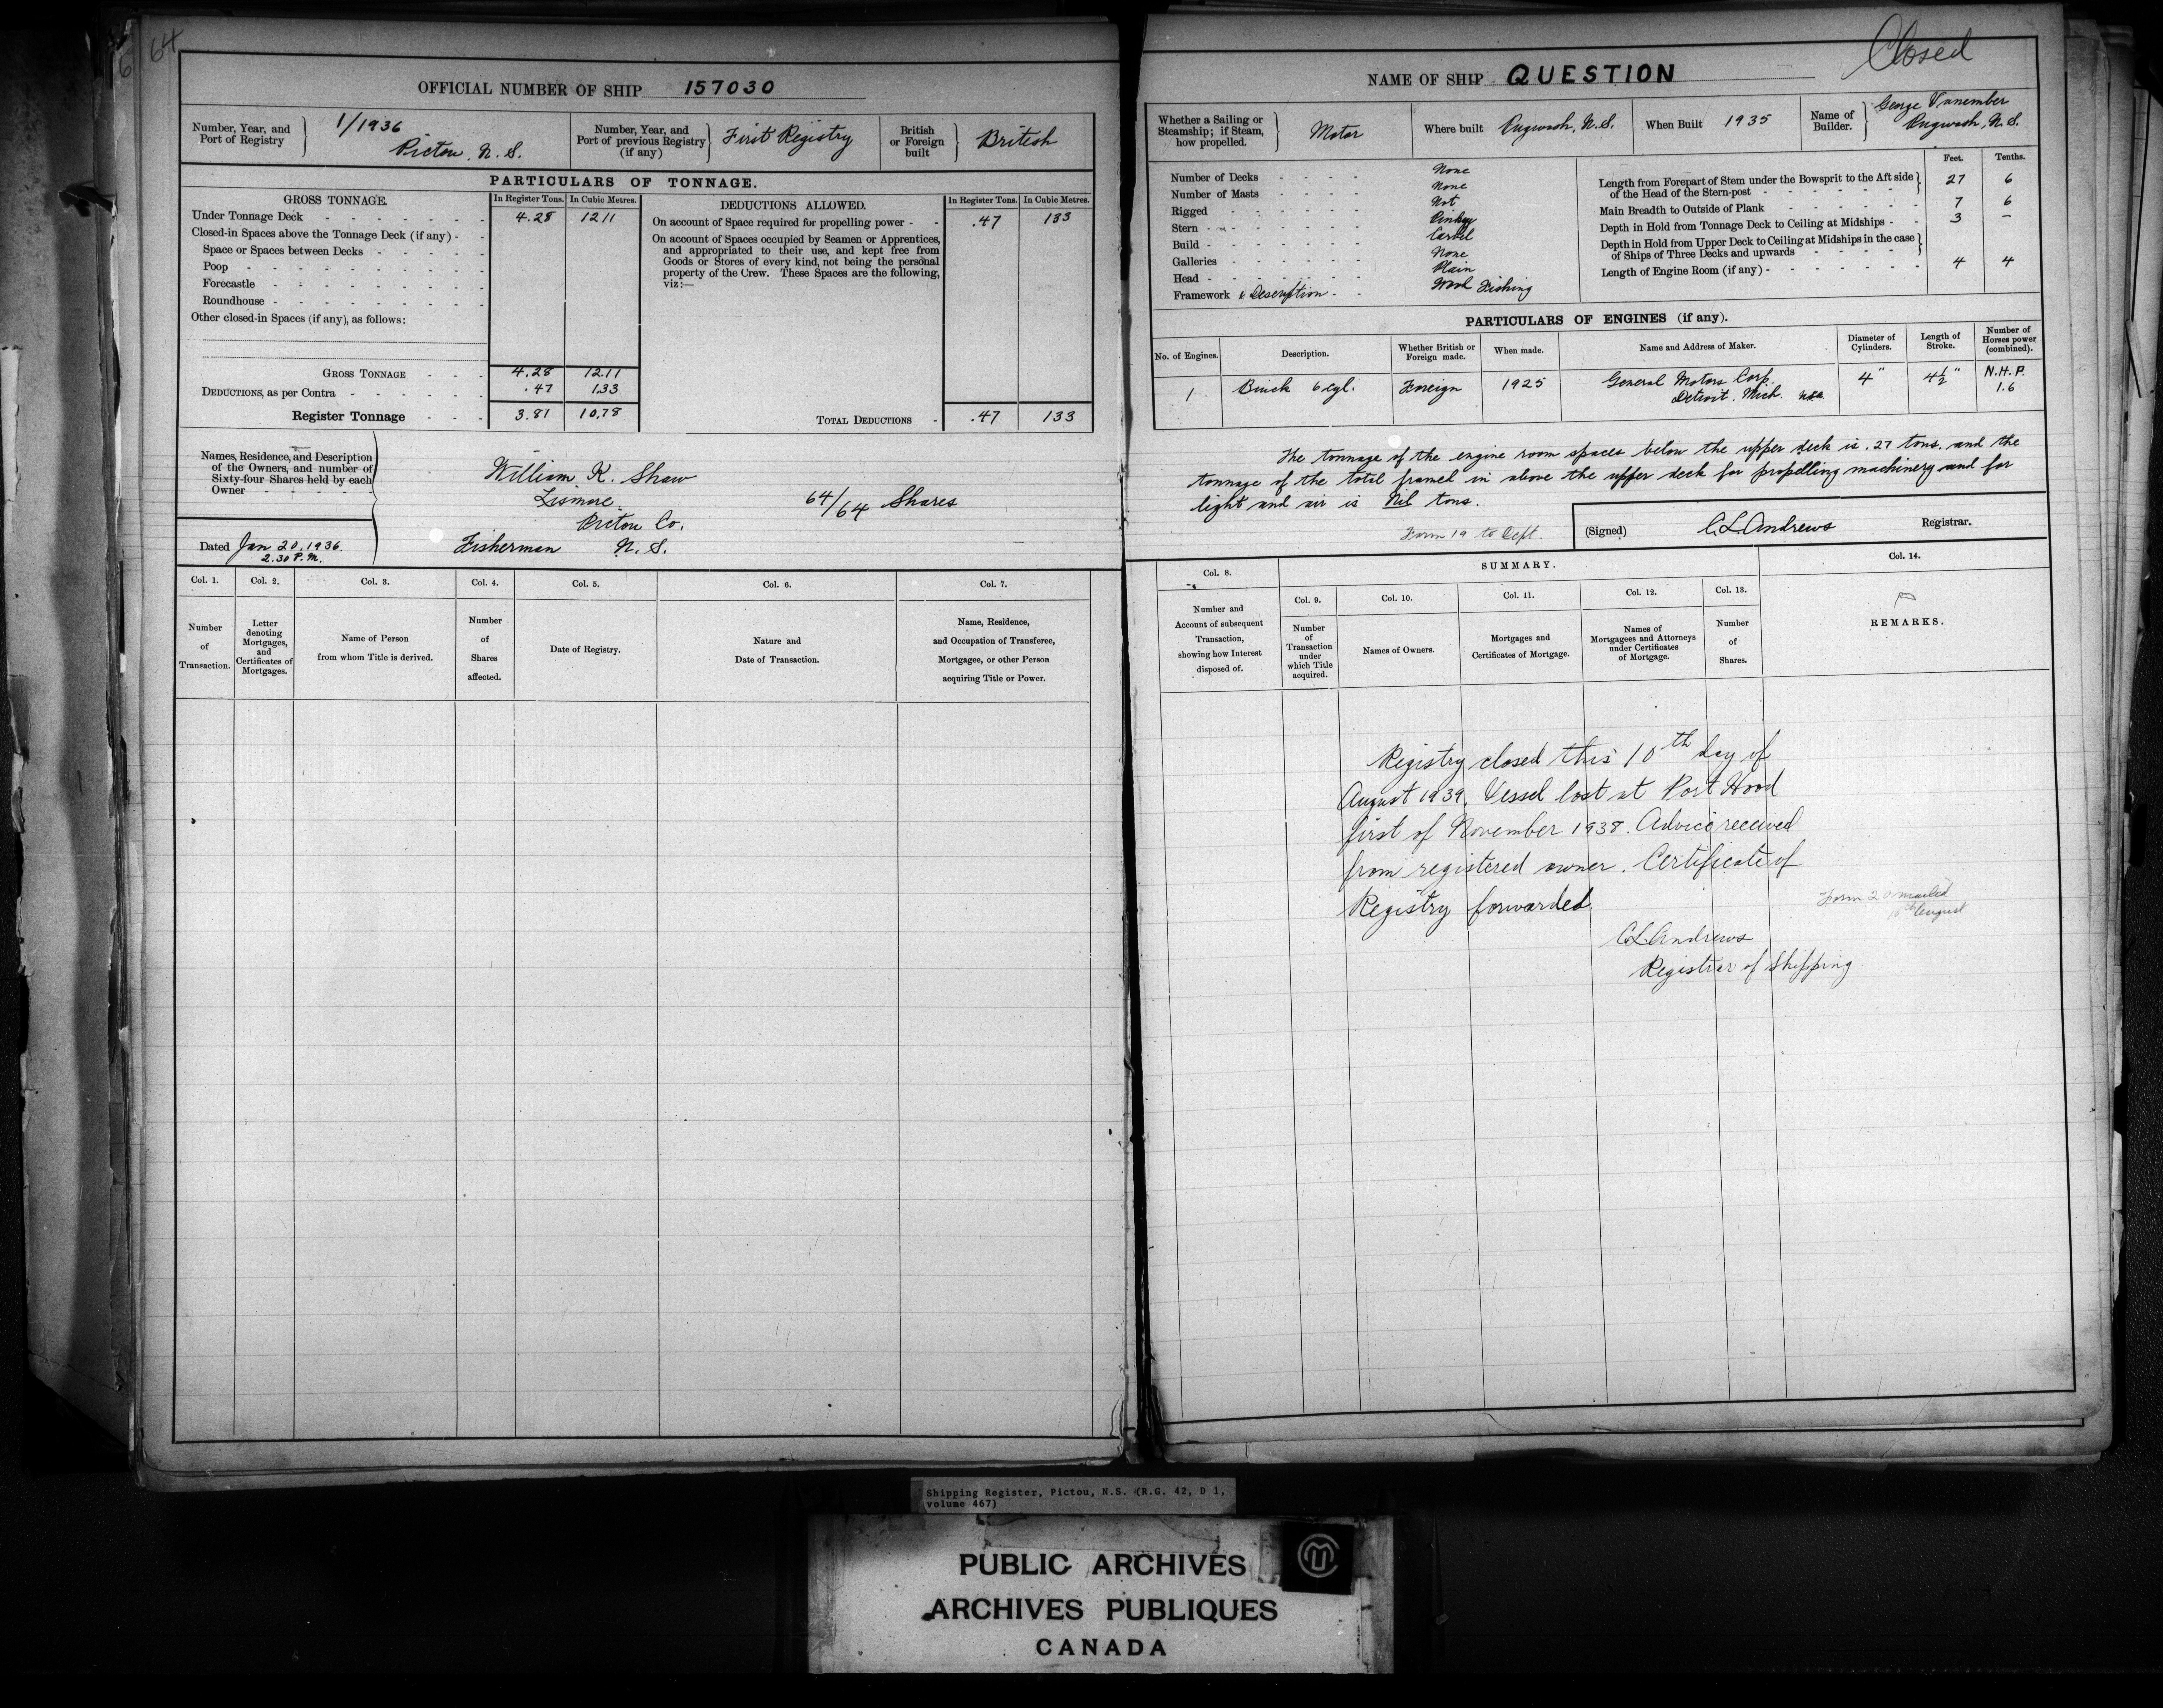 64
OFFICIAL NUMBER OF SHIP 157030
Number, Year, and Port of Registry
1/1936
Pictou, N. S.
Number, Year, and Port of previous Registry (if any)
First Registry
British or Foreign built
British
PARTICULARS OF TONNAGE.
GROSS TONNAGE.
In Register Tons.
In Cubic Metres.
DEDUCTIONS ALLOWED.
In Register Tons.
In Cubic Metres.
Under Tonnage Deck 4.28 12 11
Closed-in Spaces above the Tonnage Deck (if any)
Space or Spaces between Decks
Poop
Forecastle
Roundhouse
Other closed-in Spaces (if any), as follows:
On account of Space required for propelling power .47 133
On account of Spaces occupied by Seamen or Apprentices,
and appropriated to their use, and kept free from
Goods or Stores of every kind, not being the personal
property of the Crew. These Spaces are the following,
viz:—
GROSS TONNAGE 4.28 12.11
DEDUCTIONS, as per Contra .47 1.33
Register Tonnage 3.81 10.78
TOTAL DEDUCTIONS .47 133
Names, Residence, and Description
of the Owners, and number of
Sixty-four Shares held by each
Owner
William K. Shaw
Lismore
Pictou Co.
Fisherman N. S.
64/64 Shares
Dated Jan 20, 1936.
2.30 P.M.
Col. 1.
Col. 2.
Col. 3.
Col. 4.
Col. 5.
Col. 6.
Col. 7.
Number of Transaction.
Letter denoting Mortgages, and Certificates of Mortgages.
Name of Person from whom Title is derived.
Number of Shares affected.
Date of Registry.
Nature and Date of Transaction.
Name, Residence, and Occupation of Transferee, Mortgagee, or other Person acquiring Title or Power.
Closed
NAME OF SHIP QUESTION
Whether a Sailing or Steamship; if Steam, how propelled.
Motor
Where built Pugwash, N.S.
When Built 1935
Name of Builder.
George
Pugwash, N.S.
Number of Decks None
Number of Masts None
Rigged Not
Stern Pinkey
Build Carvel
Galleries None
Head Plain
Framework & Description Wood Fishing
Feet. Tenths.
Length from Forepart of Stem under the Bowsprit to the Aft side of the Head of the Stern-post 27 6
Main Breadth to Outside of Plank 7 6
Depth in Hold from Tonnage Deck to Ceiling at Midships 3 –
Depth in Hold from Upper Deck to Ceiling at Midships in the case of Ships of Three Decks and upwards
Length of Engine Room (if any) 4 4
PARTICULARS OF ENGINES (if any).
No. of Engines.
Description.
Whether British or Foreign made.
When made.
Name and Address of Maker.
Diameter of Cylinders.
Length of Stroke.
Number of Horses power (combined).
1
Buick 6 cyl.
Foreign
1925
General Motors Corp.
Detroit, Mich. USA
4"
4½"
N.H.P.
1.6
The tonnage of the engine room spaces below the upper deck is .27 tons. and the
tonnage of the total framed in above the upper deck for propelling machinery and for
light and air is Nil tons.
Form 19 to Dept.
(Signed) C.L. Andrews Registrar.
Col. 8.
SUMMARY.
Col. 14.
Col. 9.
Col. 10.
Col. 11.
Col. 12.
Col. 13.
Number and Account of subsequent Transaction, showing how Interest disposed of.
Number of Transaction under which Title acquired.
Names of Owners.
Mortgages and Certificates of Mortgage.
Names of Mortgagees and Attorneys under Certificates of Mortgage.
Number of Shares.
REMARKS.
Registry closed this 10th day of
August 1939. Vessel lost at Port Hood
first of November 1938. Advice received
from registered owner. Certificate of
Registry forwarded.
Form 20 mailed
10th August
C.L. Andrews
Registrar of Shipping
Shipping Register, Pictou, N.S. (R.G. 42, D 1,
volume 467)
PUBLIC ARCHIVES
ARCHIVES PUBLIQUES
CANADA